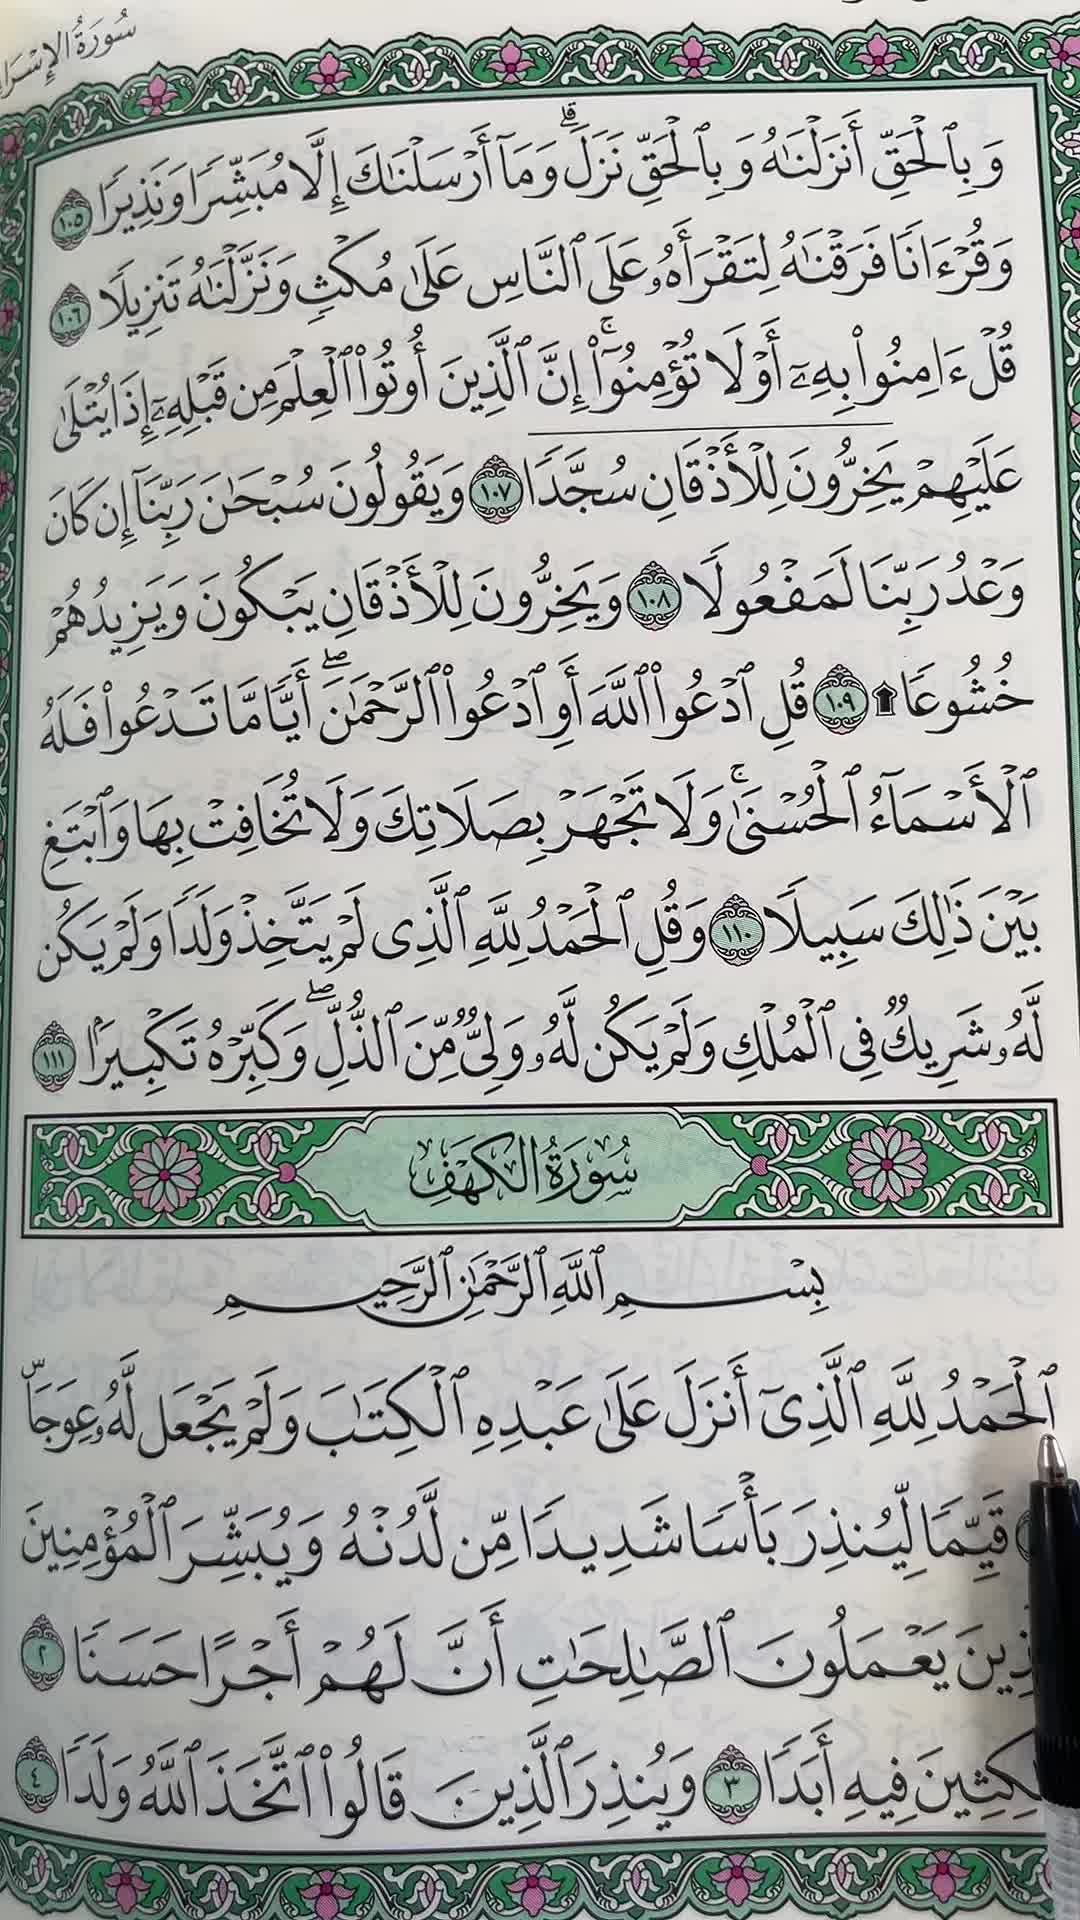 سُورَةُ الإِسْرَا
وَبِٱلْحَقِّ أَنزَلْنَٰهُ وَبِٱلْحَقِّ نَزَلَ ۗ وَمَآ أَرْسَلْنَٰكَ إِلَّا مُبَشِّرًا وَنَذِيرًا ١٠٥
وَقُرْءَانًا فَرَقْنَٰهُ لِتَقْرَأَهُۥ عَلَى ٱلنَّاسِ عَلَىٰ مُكْثٍ وَنَزَّلْنَٰهُ تَنزِيلًا ١٠٦
قُلْ ءَامِنُوا۟ بِهِۦٓ أَوْ لَا تُؤْمِنُوٓا۟ ۚ إِنَّ ٱلَّذِينَ أُوتُوا۟ ٱلْعِلْمَ مِن قَبْلِهِۦٓ إِذَا يُتْلَىٰ
عَلَيْهِمْ يَخِرُّونَ لِلْأَذْقَانِ سُجَّدًا ١٠٧ وَيَقُولُونَ سُبْحَٰنَ رَبِّنَآ إِن كَانَ
وَعْدُ رَبِّنَا لَمَفْعُولًا ١٠٨ وَيَخِرُّونَ لِلْأَذْقَانِ يَبْكُونَ وَيَزِيدُهُمْ
خُشُوعًا ۩ ١٠٩ قُلِ ٱدْعُوا۟ ٱللَّهَ أَوِ ٱدْعُوا۟ ٱلرَّحْمَٰنَ ۖ أَيًّا مَّا تَدْعُوا۟ فَلَهُ
ٱلْأَسْمَآءُ ٱلْحُسْنَىٰ ۚ وَلَا تَجْهَرْ بِصَلَاتِكَ وَلَا تُخَافِتْ بِهَا وَٱبْتَغِ
بَيْنَ ذَٰلِكَ سَبِيلًا ١١٠ وَقُلِ ٱلْحَمْدُ لِلَّهِ ٱلَّذِى لَمْ يَتَّخِذْ وَلَدًا وَلَمْ يَكُن
لَّهُۥ شَرِيكٌ فِى ٱلْمُلْكِ وَلَمْ يَكُن لَّهُۥ وَلِىٌّ مِّنَ ٱلذُّلِّ ۖ وَكَبِّرْهُ تَكْبِيرًۢا ١١١
سُورَةُ الكَهْفِ
بِسْمِ ٱللَّهِ ٱلرَّحْمَٰنِ ٱلرَّحِيمِ
ٱلْحَمْدُ لِلَّهِ ٱلَّذِىٓ أَنزَلَ عَلَىٰ عَبْدِهِ ٱلْكِتَٰبَ وَلَمْ يَجْعَل لَّهُۥ عِوَجَا ۜ
قَيِّمًا لِّيُنذِرَ بَأْسًا شَدِيدًا مِّن لَّدُنْهُ وَيُبَشِّرَ ٱلْمُؤْمِنِينَ
ذِينَ يَعْمَلُونَ ٱلصَّٰلِحَٰتِ أَنَّ لَهُمْ أَجْرًا حَسَنًا ٢
كِثِينَ فِيهِ أَبَدًا ٣ وَيُنذِرَ ٱلَّذِينَ قَالُوا۟ ٱتَّخَذَ ٱللَّهُ وَلَدًا ٤